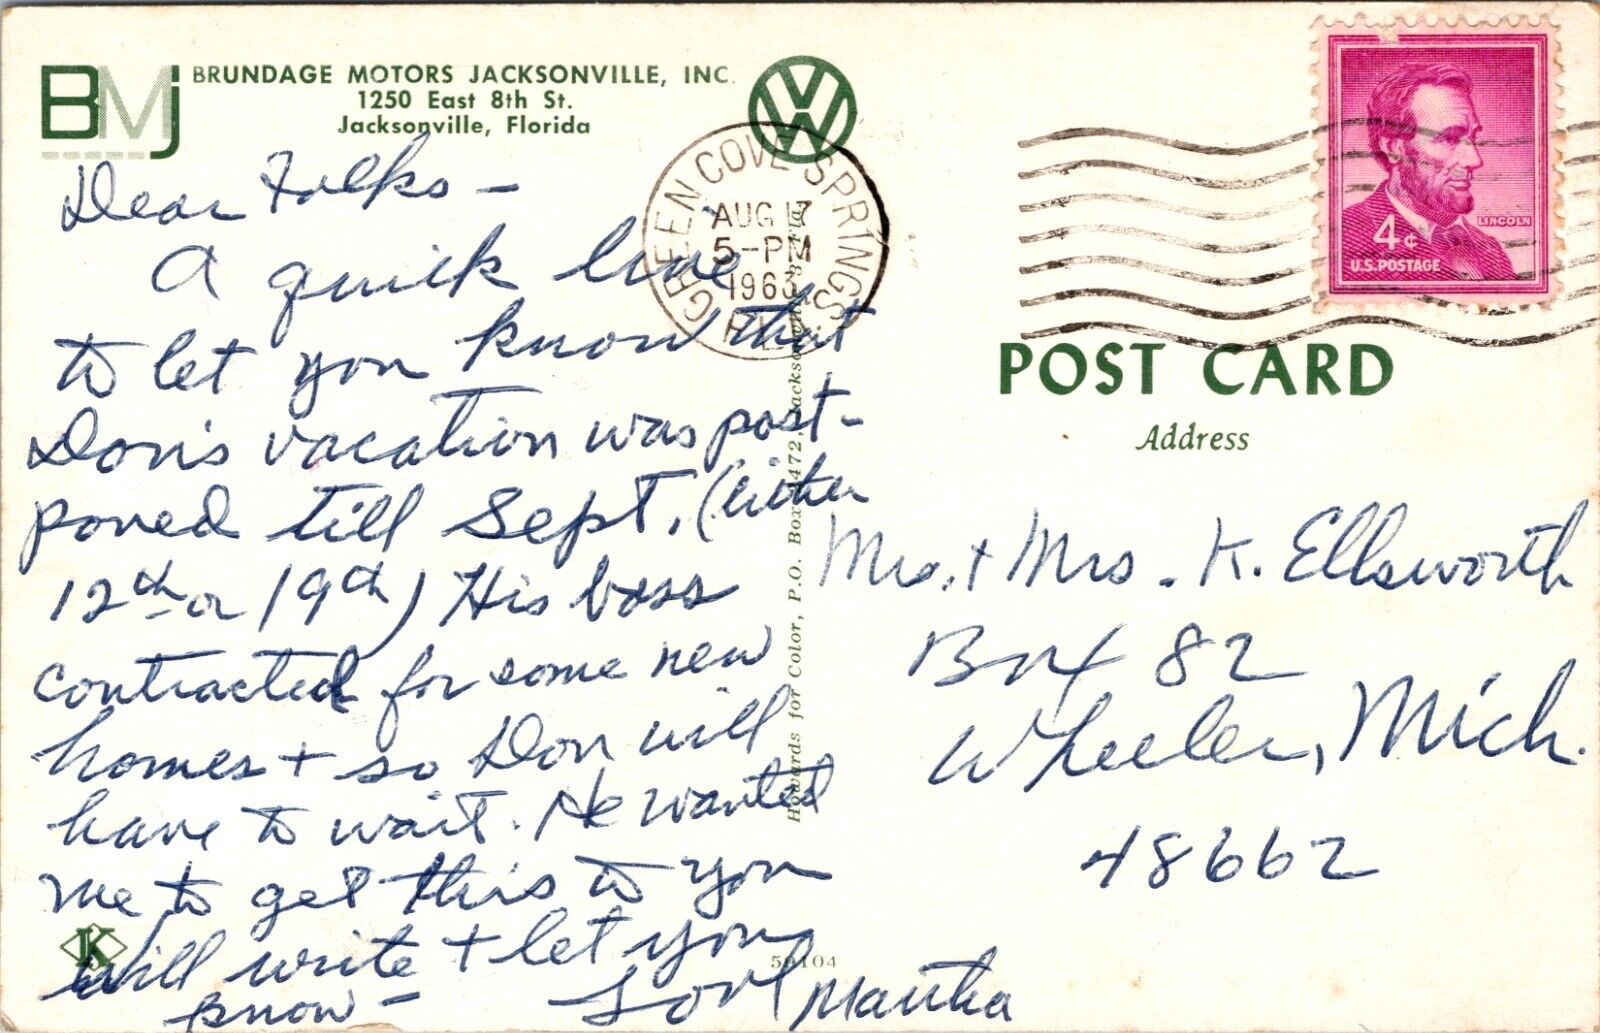 BMj
BRUNDAGE MOTORS JACKSONVILLE, INC.
1250 East 8th St.
Jacksonville, Florida
VW
GREEN COVE SPRINGS
AUG 17
5-PM
1963
FLA.
LINCOLN
4¢
U.S. POSTAGE
POST CARD
Address
Dear Folks -
A quick line
to let you know that
Don's vacation was post-
poned till Sept. (either
12th or 19th) His boss
contracted for some new
homes + so Don will
have to wait. He wanted
me to get this to you
Will write + let you
know -
Love Martha
Mr. + Mrs. K. Ellsworth
Box 82
Wheeler, Mich.
48662
Howards for Color, P.O. Box 4472, Jacksonville
K